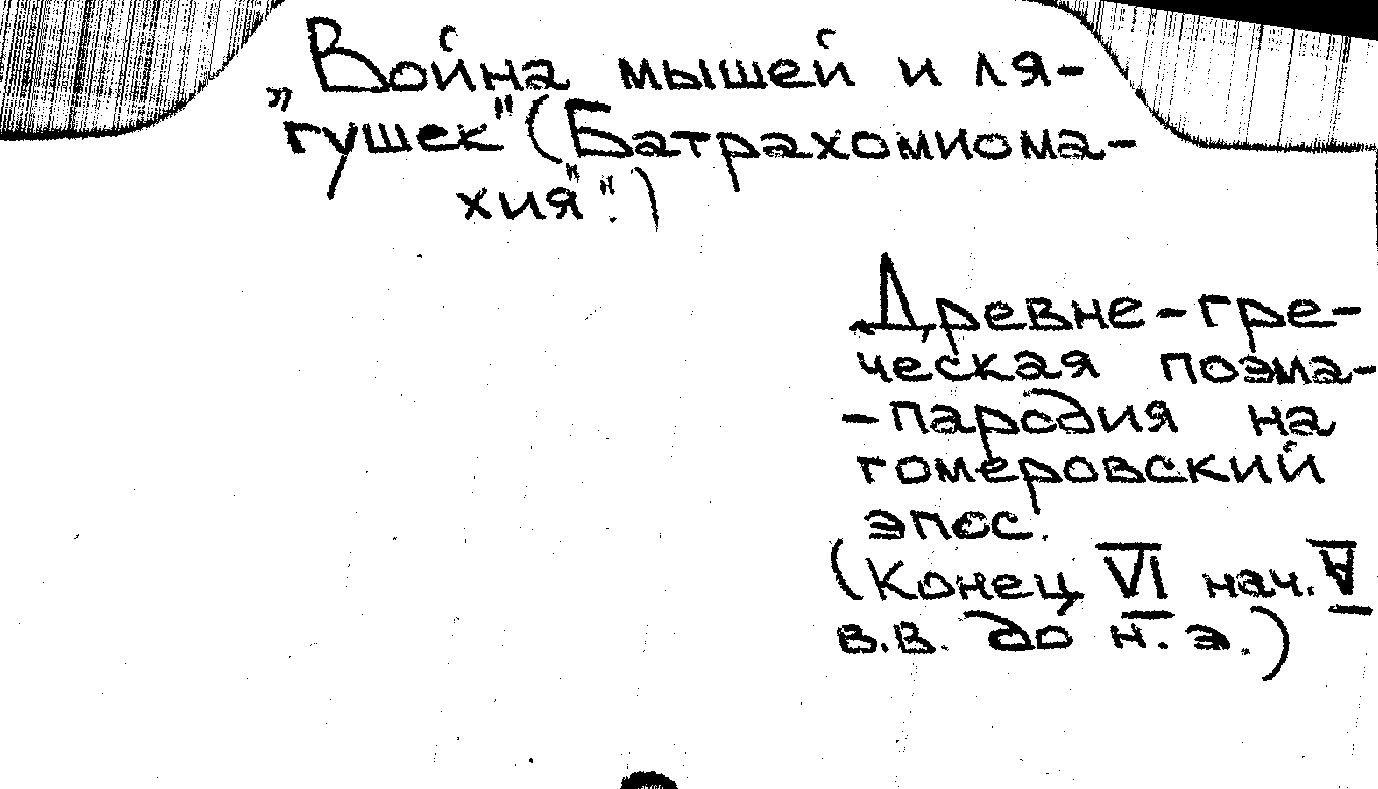 „Война мышей и ля-
гушек" (Батрахомиома-
хия".")
Древне-гре-
ческая поэма-
-пародия на
гомеровский
эпос.
(Конец VI нач. V
в.в. до н.э.)